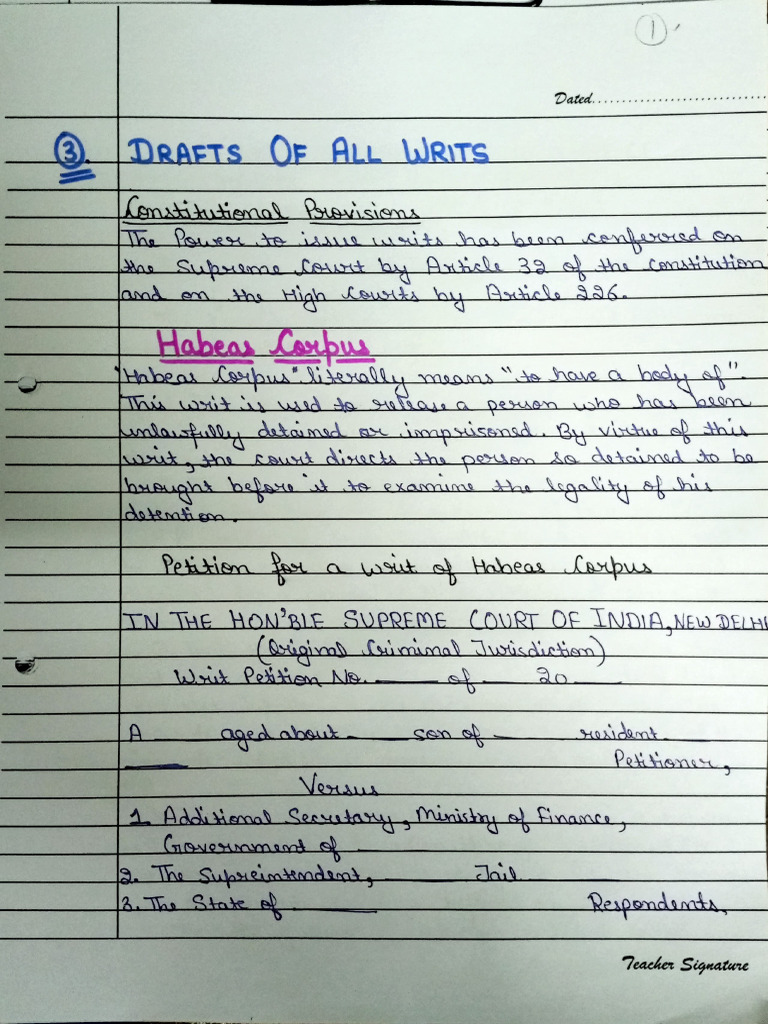 1
Dated..............................
3. DRAFTS OF ALL WRITS
Constitutional Provisions
The Power to issue writs has been conferred on
the Supreme Court by Article 32 of the constitution
and on the High Courts by Article 226.
Habeas Corpus
"Habeas Corpus" literally means "to have a body of".
This writ is used to release a person who has been
unlawfully detained or imprisoned. By virtue of this
writ, the court directs the person so detained to be
brought before it to examine the legality of his
detention.
Petition for a writ of Habeas Corpus
IN THE HON'BLE SUPREME COURT OF INDIA, NEW DELHI
(Original Criminal Jurisdiction)
Writ Petition No. ____ of ____ 20 ____
A ____ aged about ____ son of ____ resident
____ Petitioner,
Versus
1 Additional Secretary, Ministry of Finance,
Government of ____
2. The Supreintendent, ____ Jail ____
3. The State of ____ Respondents,
Teacher Signature